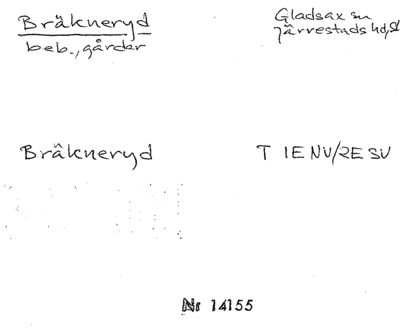 Bräkneryd
beb., gårdar
Gladsax sn
Järrestads hd, Sk
Bräkneryd
T 1E NV/2E SV
Nr 14155